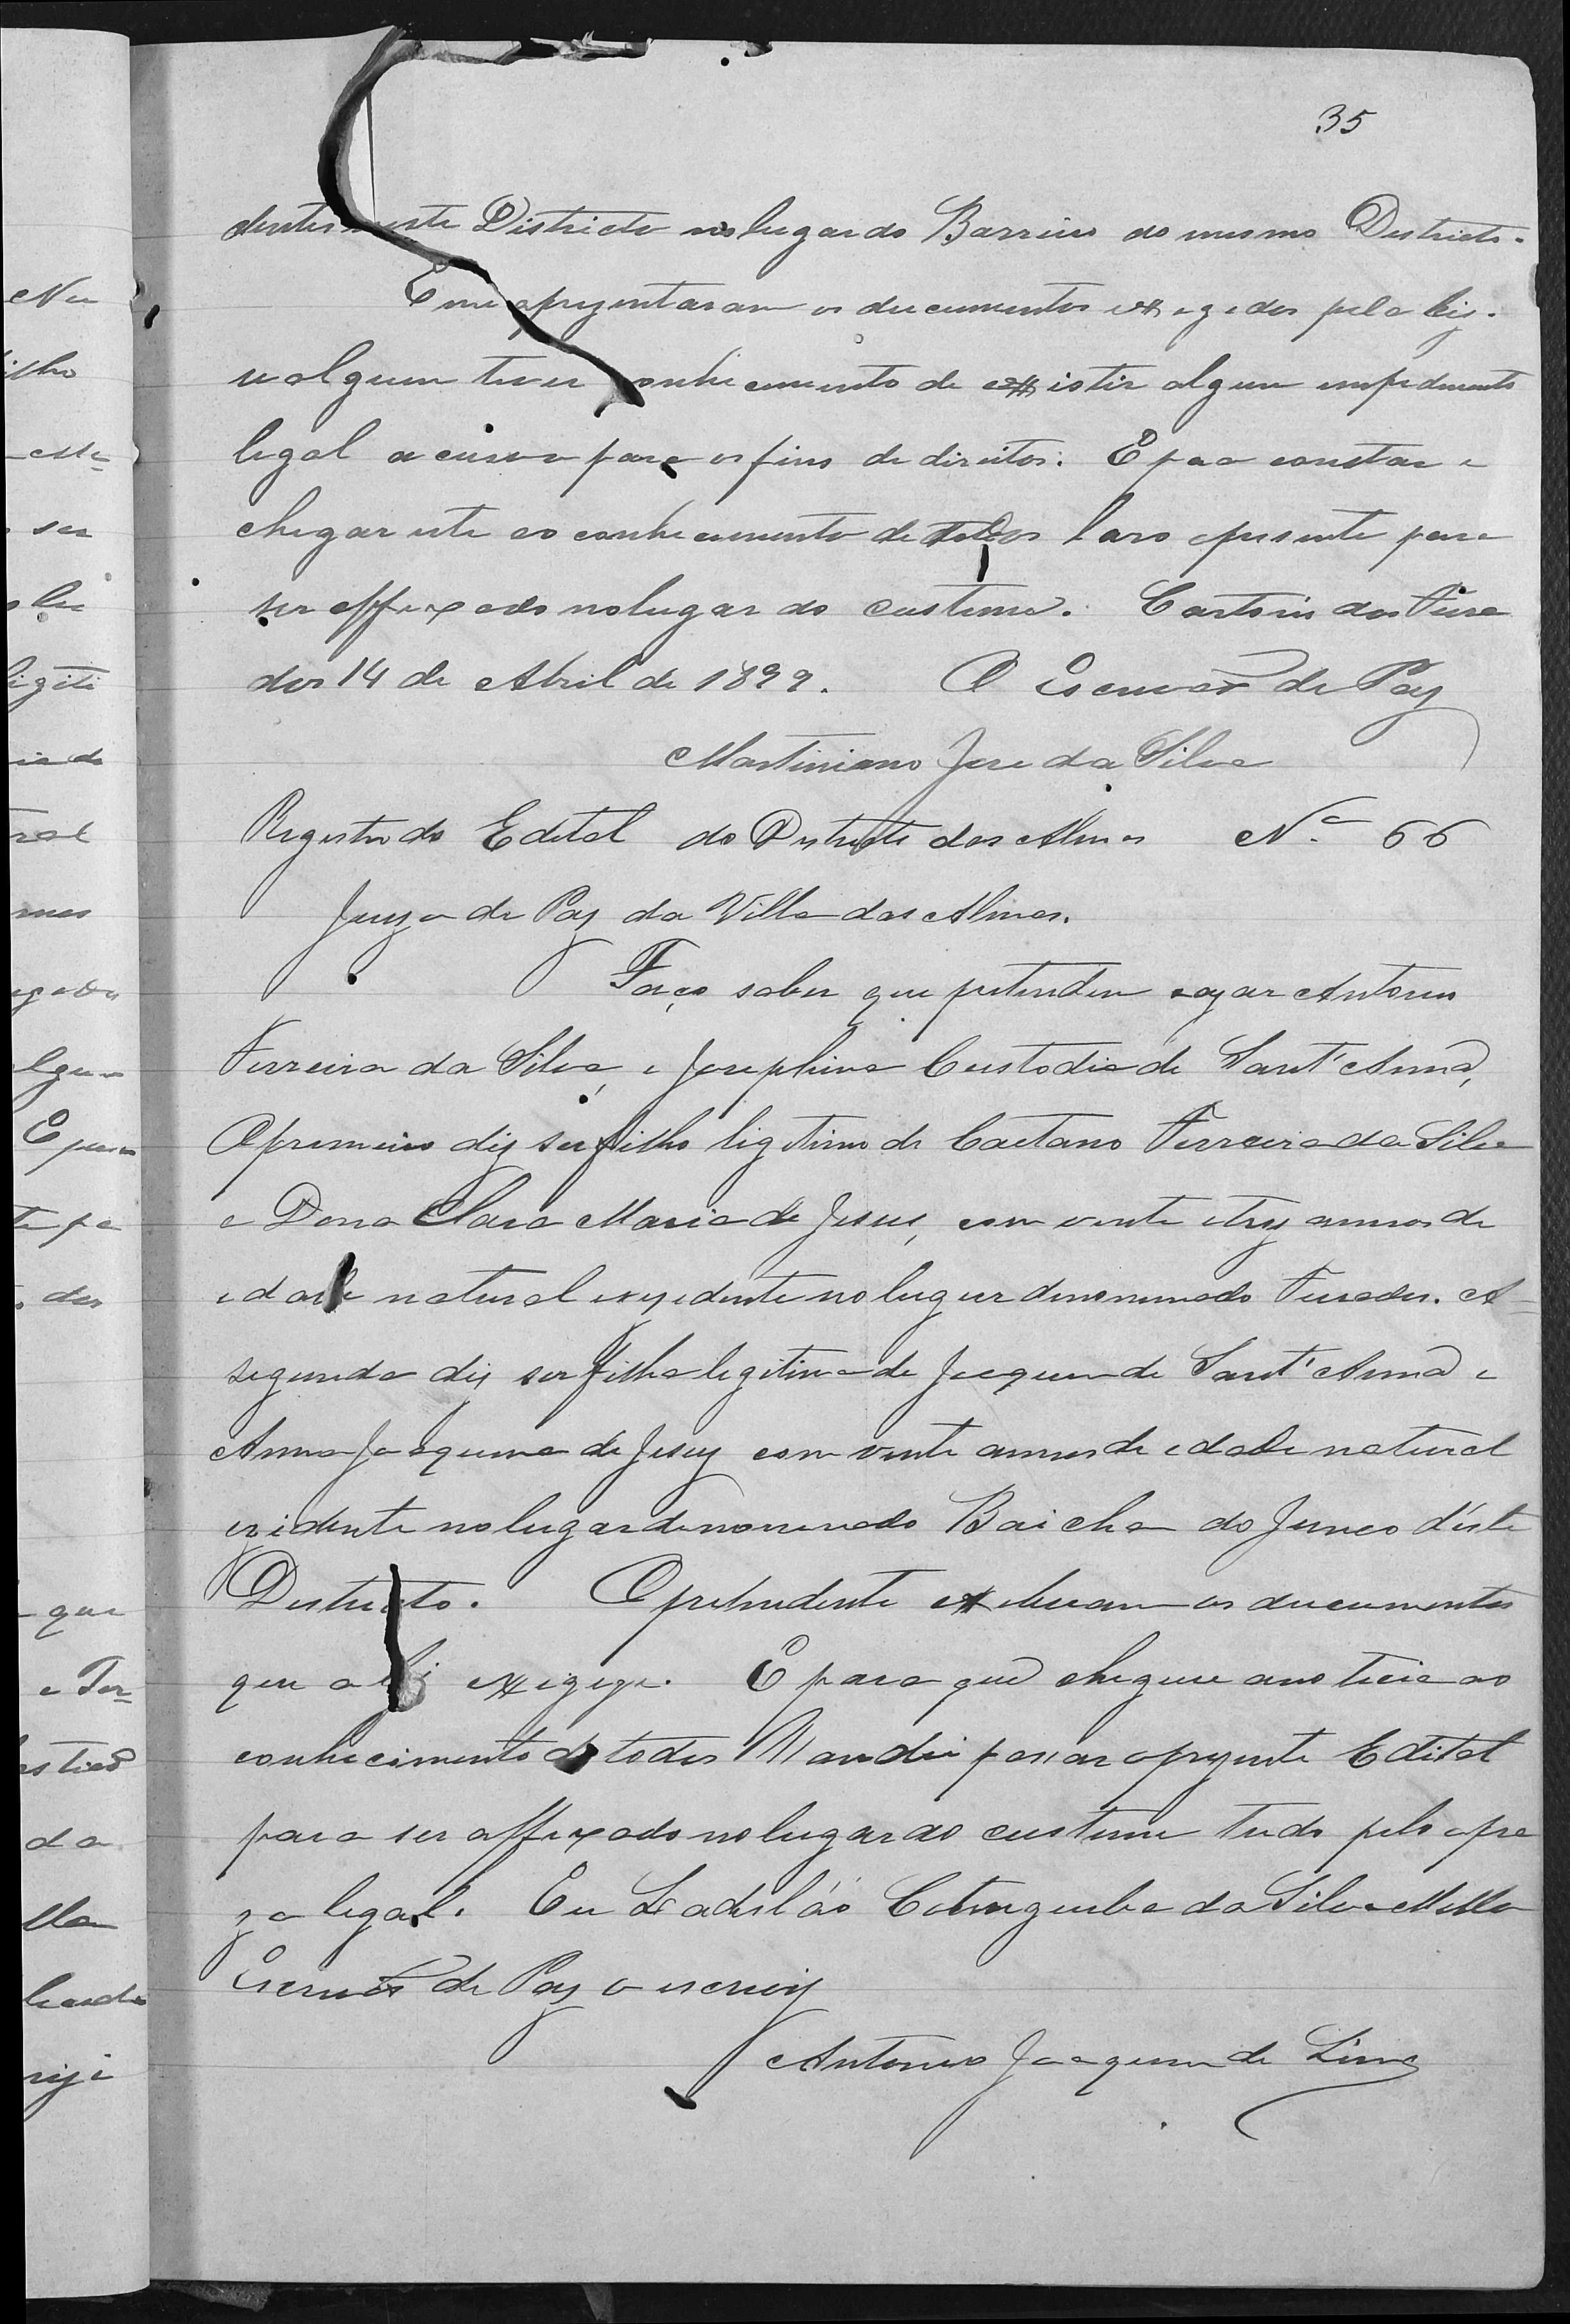 35
dentes neste Districto no lugar do Barreiro do mesmo Districto.
E me aprezentaram os documentos exegedos pela lei.
se alguem tiver conhecimento de existir algum empedimento
legal acuse-o para os fins de direitos. E para constar e
chegar este ao conhecimento de todos lavro opresente para
ser affixado no lugar do custume. Cartorio dos Fura
dos 14 de Abril de 1899. O Escrivão de Paz
Martiniano Jose da Silva
Registro do Edital do Districto das Almas Nº 66
Juizo de Paz da Villa das Almas.
Faço saber que pretendem cazar Antonio
Ferreira da Silva, e Josephina Custodia de Sant'Anna,
O premeiro diz ser filho ligitimo de Caetano Ferreira da Silva
e Dona Clara Maria de Jesus, com vinte e trez annos de
idade natural e rezidente no lugar denominado Furados. A
segunda diz ser filha legitima de Joaquim de Sant'Anna e
Anna Joaquina de Jesuz com vinte annos de edade natural
rezidente no lugar denominado Baicha do Junco d'este
Districto. O pretendente exebiram os documentos
que a lei exige. E para que chegue a noticia ao
conhecimento de todos Mandei passar oprezente Edital
para ser affixado no lugar do custume tudo pelo apra
zo legal. Eu Ladisláo Cotinguiba da Silva Mello
Escrivão de Paz o escrivy
Antonio Joaquim de Lima